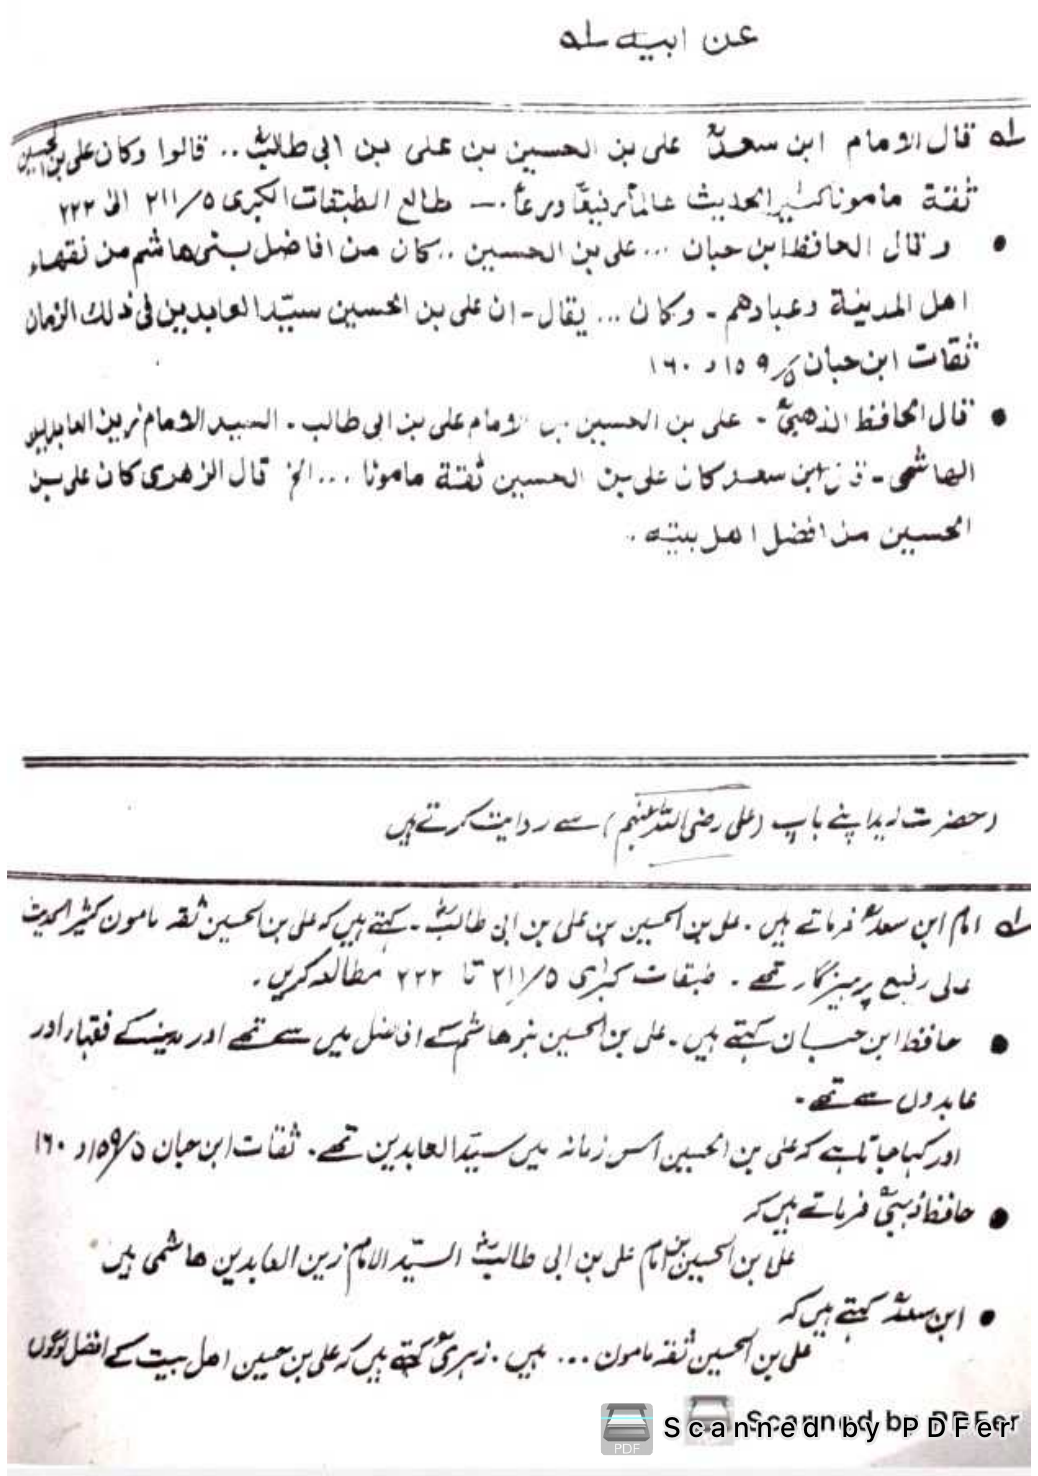 عن ابیه له
له قال الامام ابن سعدؒ علی بن الحسین بن علی بن ابی طالبؓ .. قالوا وکان علی بن الحسین
ثقة مامونا کثیر الحدیث عالماً رفیعاً ورعاً .— طالع الطبقات الکبری ٢١١/٥ الی ٢٢٢
• وقال الحافظ ابن حبان ... علی بن الحسین .. کان من افاضل بنی هاشم من فقهاء
اهل المدینة وعبادهم - وکان ... یقال - ان علی بن الحسین سیّد العابدین فی ذلك الزمان
ثقات ابن حبان ٥/١٥٩ و ١٦٠
• قال الحافظ الذهبیؒ - علی بن الحسین بن الامام علی بن ابی طالب - السید الامام زین العابدین
الهاشمی - قال ابن سعد کان علی بن الحسین ثقة مامونا ... الخ قال الزهری کان علی بن
الحسین من افضل اهل بیته .
(حضرت زید اپنے باپ (علی رضی اللہ عنہم) سے روایت کرتے ہیں
له امام ابن سعدؒ فرماتے ہیں . علی بن الحسین بن علی بن ابی طالبؓ - کہتے ہیں کہ علی بن الحسین ثقہ مامون کثیر الحدیث
عالی رفیع پرہیزگار تھے . طبقات کبرٰی ٢١١/٥ تا ٢٢٢ مطالعہ کریں .
• حافظ ابن حبان کہتے ہیں . علی بن الحسین بنو ھاشم کے افاضل میں سے تھے اور مدینہ کے فقہاء اور
عابدوں سے تھے -
اور کہا جاتا ہے کہ علی بن الحسین اس زمانہ میں سیّد العابدین تھے . ثقات ابن حبان ٥/١٥٩ و ١٦٠
• حافظ ذہبیؒ فرماتے ہیں کہ
علی بن الحسین بن امام علی بن ابی طالبؓ السیّد الامام زین العابدین ھاشمی ہیں
• ابن سعدؒ کہتے ہیں کہ
علی بن الحسین ثقہ مامون ... ہیں . زہریؒ کہتے ہیں کہ علی بن حسین اھل بیت کے افضل لوگوں
Scanned by PDFer
Scanned by PDFer
PDF